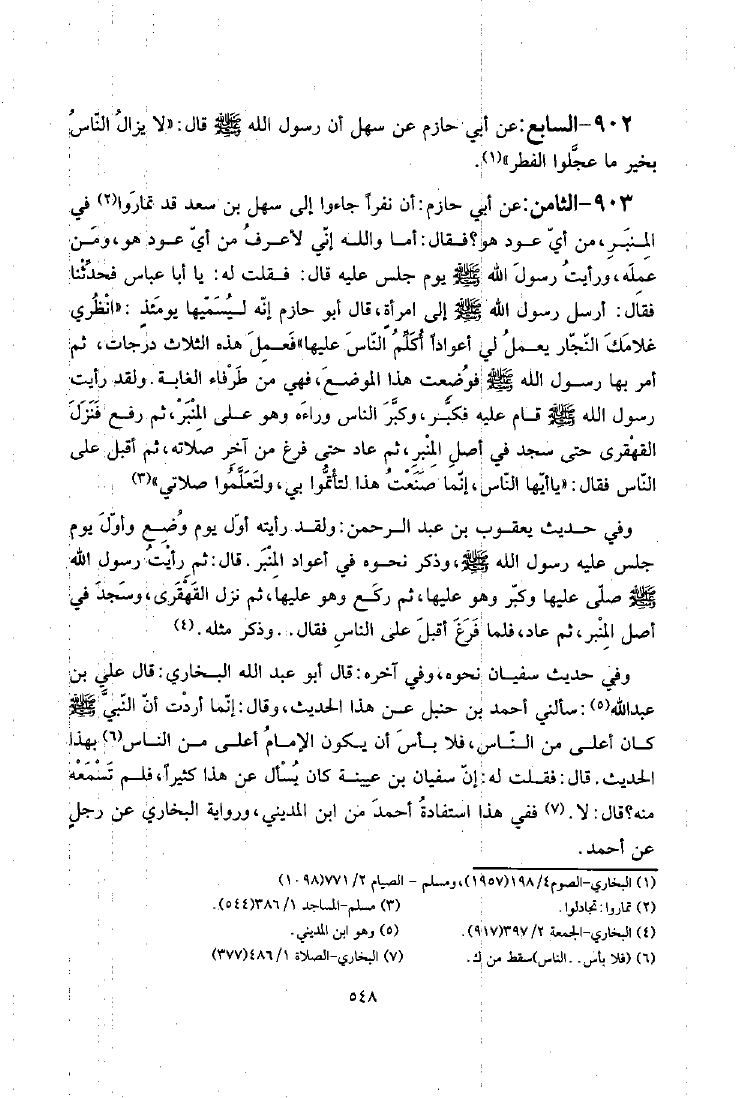 ٩٠٢-السابع:عن أبي حازم عن سهل أن رسول الله ﷺ قال:«لا يزالُ النّاسُ
بخير ما عجَّلوا الفطر»(١).
٩٠٣-الثامن:عن أبي حازم:أن نفراً جاءوا إلى سهل بن سعد قد تمارَوا(٢) في
المِنبَر، من أيّ عود هو؟فقال: أما والله إنّي لأعرفُ من أيّ عود هو، ومَن
عملَه، ورأيتُ رسولَ الله ﷺ يوم جلس عليه قال: فقلت له: يا أبا عباس فحدِّثْنا
فقال: أرسل رسول الله ﷺ إلى امرأةٍ، قال أبو حازم إنّه ليُسَمّيها يومئذٍ :«انْظُري
غلامَكَ النّجّار يعملُ لي أعواداً أُكَلِّمُ النّاسَ عليها»فَعملَ هذه الثلاث درجات، ثم
أمر بها رسول الله ﷺ فوُضعت هذا الموضعَ، فهي من طَرْفاء الغابة. ولقد رأيت
رسول الله ﷺ قام عليه فكبَّر، وكبَّرَ الناس وراءَه وهو على المِنْبَرْ، ثم رفع فَنَزَلَ
القهْقرى حتى سجد في أصلِ المِنْبر، ثم عاد حتى فرغ من آخرِ صلاته، ثم أقبل على
النّاس فقال: «ياأيّها النّاس، إنّما صَنَعْتُ هذا لتأتَمُّوا بي، ولتَعَلَّمُوا صلاتي»(٣)
وفي حديث يعقوب بن عبد الرحمن: ولقد رأيته أوّل يوم وُضع وأوّلَ يوم
جلس عليه رسول الله ﷺ، وذكر نحوه في أعواد المِنْبَر. قال: ثم رأيْتُ رسول الله
ﷺ صلّى عليها وكبّر وهو عليها، ثم ركَع وهو عليها، ثم نزل القَهْقَرى، وسَجدَ في
أصل المنْبر، ثم عاد، فلما فَرَغَ أقبلَ على الناسِ فقال. . وذكر مثله. (٤)
وفي حديث سفيان نحوه، وفي آخره: قال أبو عبد الله البخاري: قال علي بن
عبدالله(٥): سألني أحمد بن حنبل عن هذا الحديث، وقال: إنّما أردْت أنّ النّبيَّ ﷺ
كان أعلى من النّاس، فلا بأسَ أن يكون الإمامُ أعلى من الناس(٦) بهذا
الحديث. قال: فقلت له: إنّ سفيان بن عيينة كان يُسْأل عن هذا كثيراً، فلم تَسْمَعْه
منه؟قال: لا. (٧) ففي هذا استفادةُ أحمدَ من ابن المديني، ورواية البخاري عن رجلٍ
عن أحمد.
(١) البخاري-الصوم٤/ ١٩٨(١٩٥٧)، ومسلم - الصيام ٢/ ٧٧١(١٠٩٨)
(٢) تماروا: تجادلوا. (٣) مسلم-المساجد ١/ ٣٨٦(٥٤٤).
(٤) البخاري-الجمعة ٢/ ٣٩٧(٩١٧). (٥) وهو ابن المديني.
(٦) (فلا بأس. .الناس)سقط من ك. (٧) البخاري-الصلاة ١/ ٤٨٦(٣٧٧)
٥٤٨